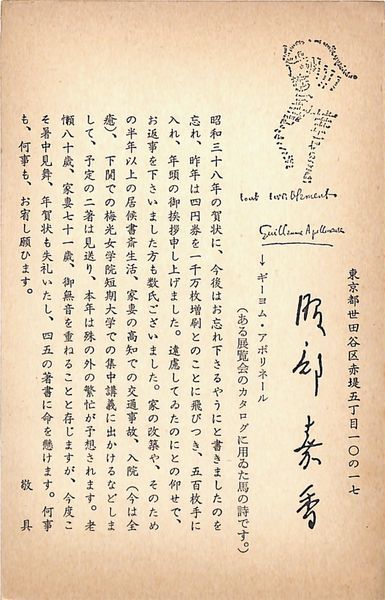 tout terriblement
Guillaume Apollinaire
東京都世田谷区赤堤五丁目一〇の一七
服部嘉香
↓ギーヨム・アポリネール
(ある展覧会のカタログに用ゐた馬の詩です。)
昭和三十八年の賀状に、今後はお忘れ下さるやうにと書きましたのを
忘れ、昨年は四円券を一千万枚増刷とのことに飛びつき、五百枚手に
入れ、年頭の御挨拶申し上げました。遠慮してみたのにとの仰せで、
お返事を下さいました方も数氏ございました。家の改築や、そのため
の半年以上の居候書斎生活、家妻の高知での交通事故、入院(今は全
癒)、下関での梅光女学院短期大学での集中講義に出かけるなどしま
して、予定の二著は見送り、本年は殊の外の繁忙が予想されます。老
懶八十歳、家妻七十一歳、御無音を重ねることと存じますが、今度こ
そ暑中見舞、年賀状も失礼いたし、四五の著書に命を懸けます。何事
も、何事も、お宥し願ひます。
敬具